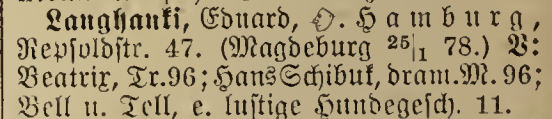 Langhanki, Eduard, D. Hamburg,
Repsoldstr. 47. (Magdeburg 25|1 78.) V:
Beatrix, Tr. 96; Hans Schibuk, dram. M. 96;
Bell u. Tell, e. lustige Hundegesch. 11.